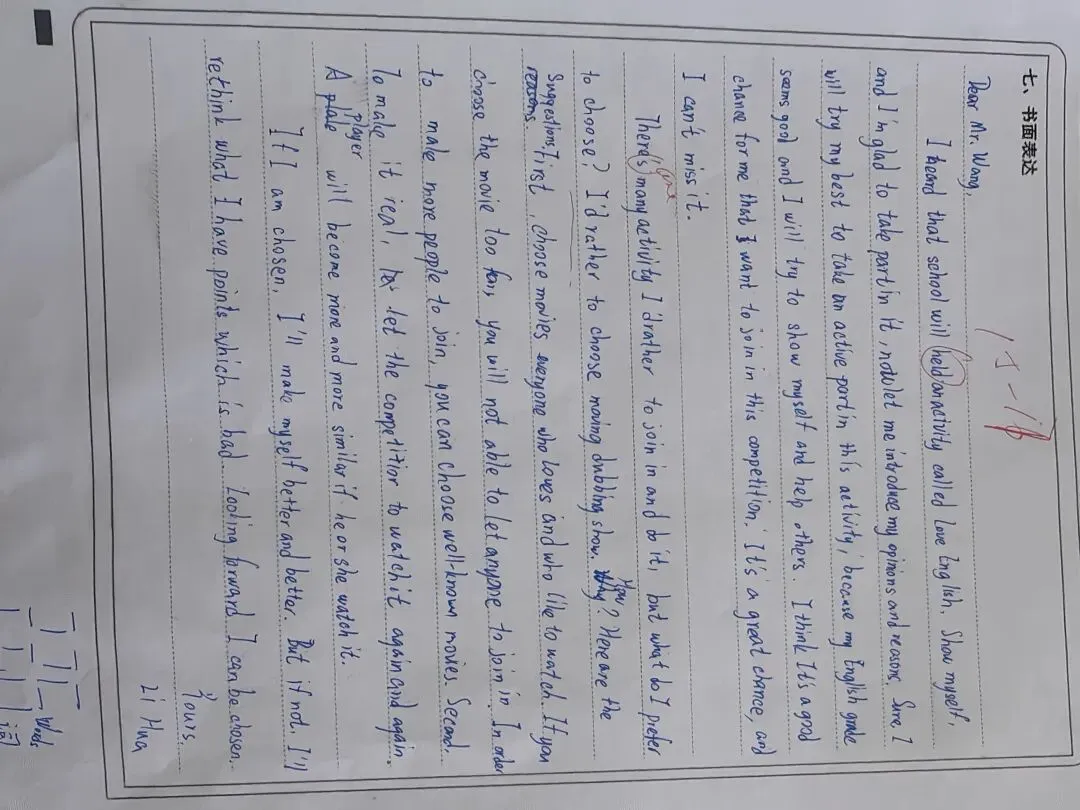 七、书面表达
15-1分
Dear Mr. Wang,
I heard that school will held an activity called love English. Show myself,
and I'm glad to take part in it, now let me introduce my opinions and reasons. Sure I
will try my best to take an active part in this activity, because my English grade
seems good and I will try to show myself and help others. I think It's a good
chance for me that I want to join in this competition. It's a great chance, and
I can't miss it.
There's many activity I'd rather to join in and do it, but what do I prefer
are
to choose? I'd rather to choose moving dubbing show. Why? Here are the
How
suggestions, First, choose movies everyone who loves and who like to watch. If you
reasons.
choose the movie too far, you will not able to let anyone to join in. In order
to make more people to join, you can choose well-known movies. Second
To make it real, let the competitior to watch it again and again.
A player will become more and more similar if he or she watch it.
If I am chosen, I'll make myself better and better. But if not. I'll
rethink what I have points which is bad. Looling forward I can be chosen.
Yours,
Li Hua
Words